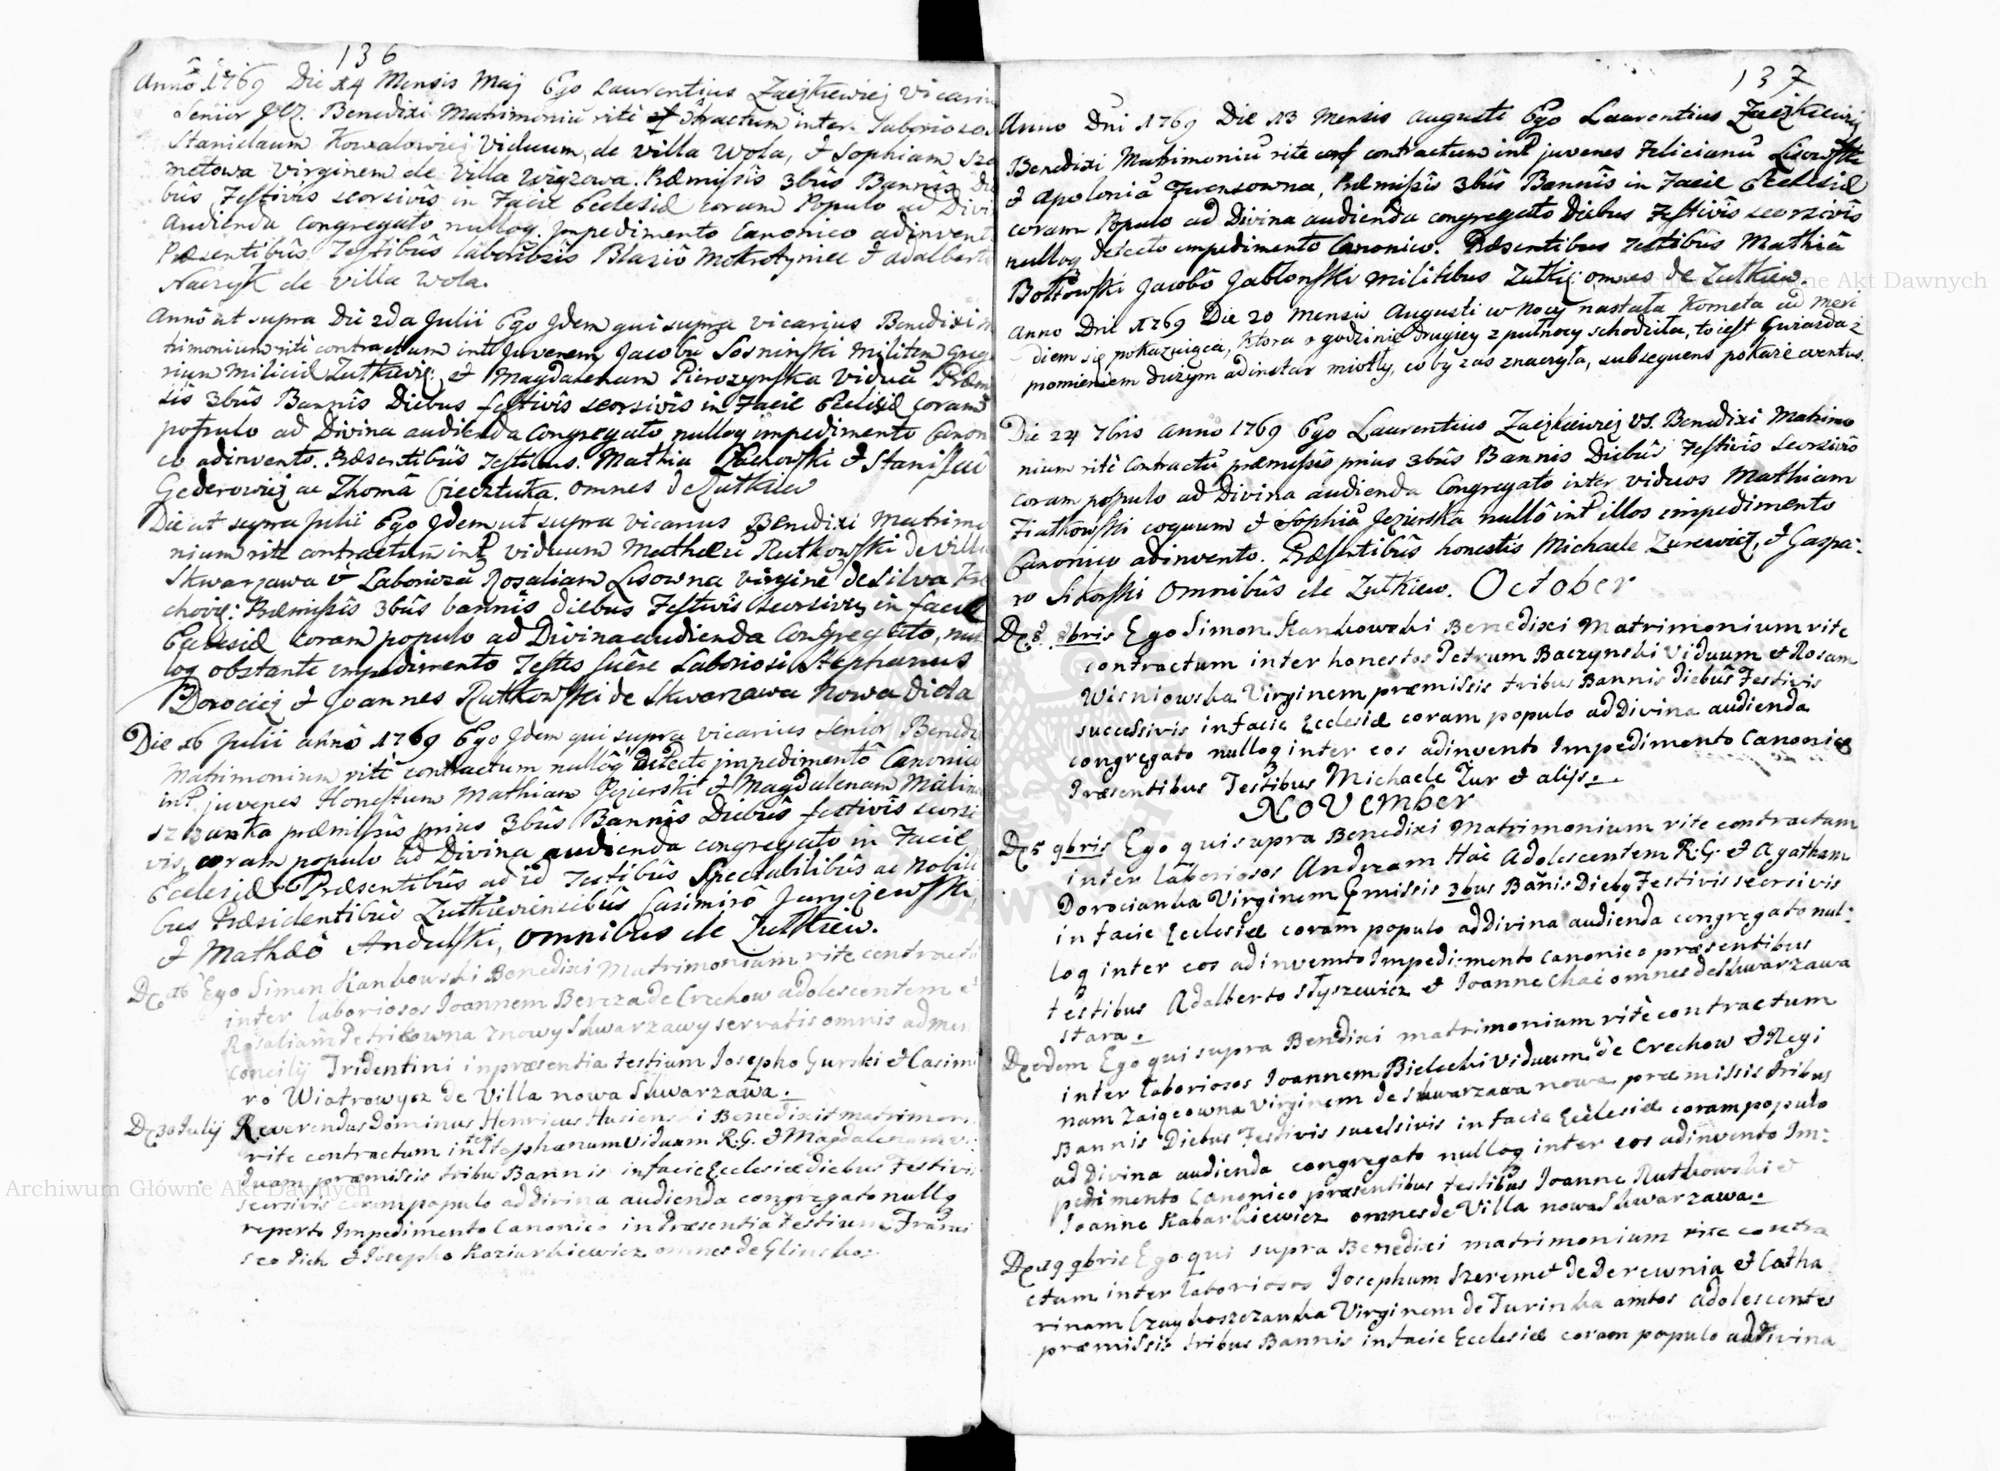 136
Anno 1769 Die 14 Mensis Maij Ego Laurentius Zaczkiewicz Vicariu
Senior Benedixi Matrimoniu rite contractum inter Laborioso
Stanislaum Kowalowicz Viduum, de villa Wola, et Sophiam
metowa Virginem de Villa Wiązowa. Præmissis 3bus Bannis Die
bus Festivis seorsivis in Facie Ecclesiæ coram Populo ad Divi
audienda congregato nulloq. Impedimento Canonico adinvent
Præsentibus Testibus laboriosis Blasio Mokrotyniec et Adalberto
de villa Wola.
Anno ut supra Die 2da Julii Ego Idem qui supra vicarius Benedixi
trimonium rite contractum inter Juvenem Jacobu Sosninski Militem Greg
rium Miliciæ Zutkiew: et Magdalenam Pierozynska Vidua Præm
sis 3bus Bannis Diebus festivis seorsivis in Facie Ecclesiæ coram
populo ad Divina audienda congregato nulloq impedimento Canon
co adinvento. Præsentibus Testibus. Mathia et Stanislao
ac Thoma omnes de Zutkiew
Die ut supra Julii Ego Idem ut supra vicarius Benedixi Matrimo
nium rite contractum int viduum Mathæu Rutkowski de Villa
Skwarzawa et Laboriosa Rosaliam Lisowna virgine de Silva
Præmissis 3bus bannis diebus Festivis seorsivis in facie
Ecclesiæ coram populo ad Divina audienda Congregato, nul
loq obstante impedimento Testes fuere Laboriosi Stephanus
Dorocicz et Joannes Rutkowski de Skwarzawa Nowa dicta
Die 16 Julii anno 1769 Ego Idem qui supra vicarius Senior Benedi
Matrimonium rite contractum nulloq detecto impedimento Canonico
int juvenes Honestum Mathiam Jezierski et Magdalenam Malino
præmissis prius 3bus Bannis Diebus festivis seorsi
vis, coram populo ad Divina audienda congregato in Facie
Ecclesiæ Præsentibus ad id Testibus Spectabilibus ac Nobili
bus Præsidentibus Zutkieviensibus Casimiro
et Mathæo Andulski, omnibus de Zutkiew.
D. Ego Simon Kankowski Benedixi Matrimonium rite contract
inter laboriosos Joannem Bereza de Crechow adolescentem et
Rosaliam Petrikowna z nowy Skwarzawy servatis omnis ad men
Concilij Tridentini in præsentia testium Josepho Gurski et Casim
ro Wiatrowycz de Villa nowa Skwarzawa.
D. 30 Julij Reverendus Dominus Henricus Benedixit matrimon
rite contractum inter Stephanum viduum R.G. et Magdalenam vi
duam præmissis tribus Bannis in facie Ecclesiæ diebus Festivi
seorsivis coram populo ad divina audienda congregato nulloq
reperto Impedimento Canonico in Præsentia Testium Franci
sco dich et Josepho Kaziurkiewicz omnes de Glinsko.
137
Anno Dni 1769 Die 13 Mensis Augusti Ego Laurentius Zaczkiewicz
Benedixi Matrimoniu rite contractum int juvenes Felicianu Lisowski
et Apolonia Præmissis 3bus Bannis in Facie Ecclesiæ
coram Populo ad Divina audienda congregato Diebus Festivis seorsivis
nulloq detecto impedimento Canonico. Præsentibus Testibus Mathia
Jacobo Jablonski militibus Zutkij: omnes de Zutkiew.
Anno Dni 1769 Die 20 Mensis Augusti w Nocy nastała Kometa ad meri
diem się pokazuiąca, ktora o godzinie drugiey z pułnocy schodziła, to iest Gwiazda z
promieniem dużym ad instar miotły, co by zas znaczyła, subsequens pokaże eventus.
Die 24 7bris Anno 1769 Ego Laurentius Zaczkiewicz VS. Benedixi Matrimo
nium rite Contractu præmissis prius 3bus Bannis Diebus Festivis seorsivis
coram populo ad Divina audienda Congregato inter viduos Mathiam
Fiatkowski coquum et Sophia Jezierska nullo int illos impedimento
Canonico adinvento. Præsentibus honestis Michaele Zurewicz, et Gaspa:
ro Sikorski Omnibus de Zutkiew. October
D. 8. 8bris Ego Simon Kankowski Benedixi Matrimonium rite
contractum inter honestos Petrum Baczynski Viduum et Rosam
Wisniowska Virginem præmissis tribus Bannis diebus Festivis
successivis in facie Ecclesiæ coram populo ad Divina audienda
congregato nulloq inter eos adinvento Impedimento Canonico
Præsentibus Testibus Michaele Zur et alijs.
November
D. 5 9bris Ego qui supra Benedixi Matrimonium rite contractum
inter laboriosos Andream Hac Adolescentem R.G. et Agatham
Dorocianka Virginem Pmissis 3bus Banis Diebq Festivis seorsivis
in facie Ecclesiæ coram populo ad divina audienda congregato nul:
loq inter eos adinvento Impedimento canonico præsentibus
testibus Adalberto Słyszewicz et Joanne Chac omnes de Skwarzawa
stara.
D. eodem Ego qui supra Benedixi matrimonium rite contractum
inter laboriosos Joannem Bielecki viduum de Crechow et Regi
nam Zaigcowna Virginem de Skwarzawa nowa præmissis tribus
Bannis Diebus Festivis sucessivis in facie Ecclesiæ coram populo
ad Divina audienda congregato nulloq inter eos adinvento Im:
pedimento Canonico præsentibus testibus Joanne Rutkowski et
Joanne Kabarkiewicz omnes de Villa nowa Skwarzawa.
D. 19 9bris Ego qui supra Benedixi matrimonium rite contra
ctum inter laboriosos Josephum Szeremet de Derewnia et Catha
rinam Czaykoszczanka Virginem de Turinka ambos adolescentes
præmissis tribus Bannis in facie Ecclesiæ coram populo ad divina
Archiwum Główne Akt Dawnych
Archiwum Główne Akt Dawnych